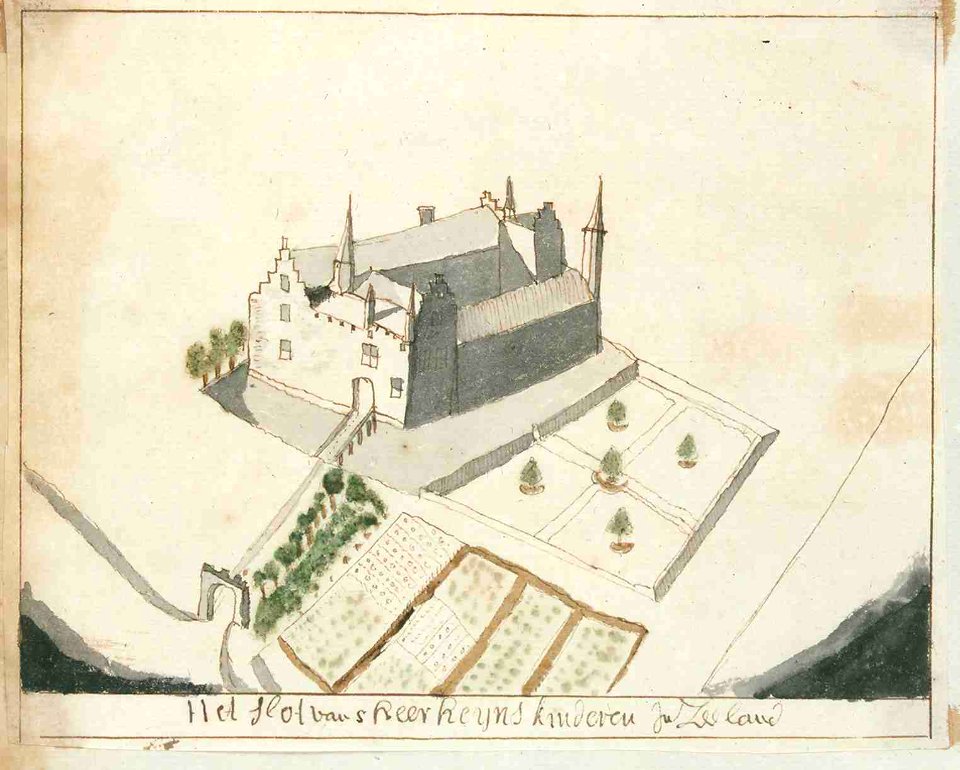 Het Slot van s heer heijns kinderen In Zeeland